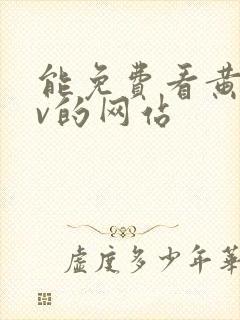 能免費看黄
v的网佔
虚度多少年華